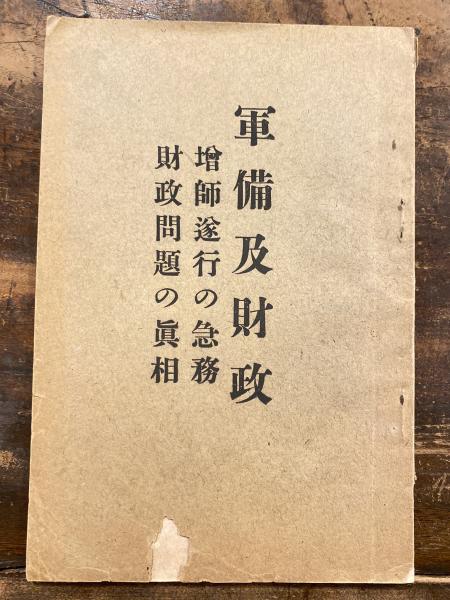 軍備及財政
増師遂行の急務
財政問題の眞相